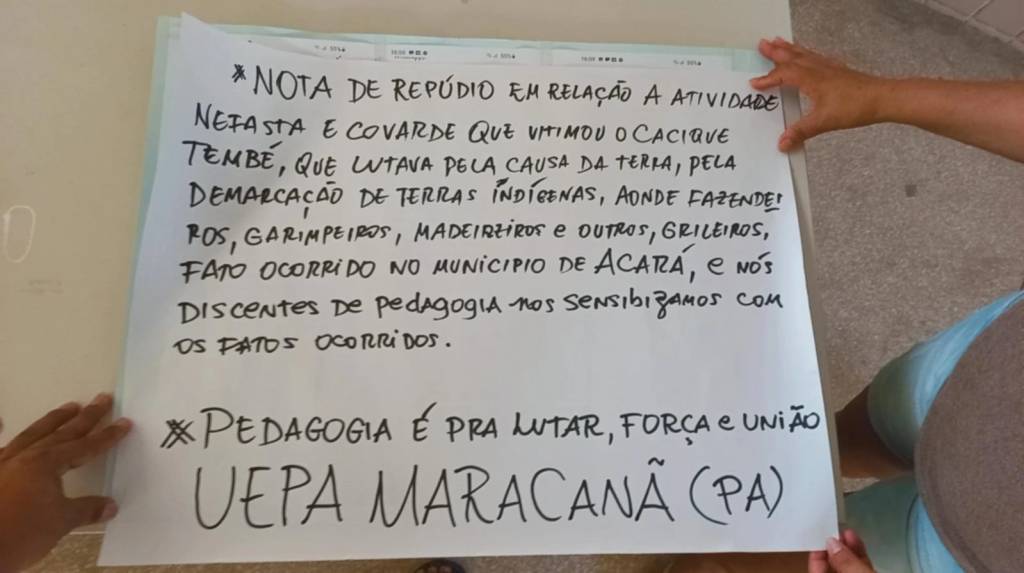 * NOTA DE REPÚDIO EM RELAÇÃO A ATIVIDADE
NEFASTA E COVARDE QUE VITIMOU O CACIQUE
TEMBÉ, QUE LUTAVA PELA CAUSA DA TERRA, PELA
DEMARCAÇÃO DE TERRAS INDÍGENAS, AONDE FAZENDEI
ROS, GARIMPEIROS, MADEIREIROS e OUTROS, GRILEIROS,
FATO OCORRIDO NO MUNICIPIO DE ACARÁ, e NÓS
DISCENTES DE PEDAGOGIA nos SENSIBIZAMOS COM
OS FATOS OCORRIDOS.
* PEDAGOGIA É PRA LUTAR, FORÇA e UNIÃO
UEPA MARACANÃ (PA)